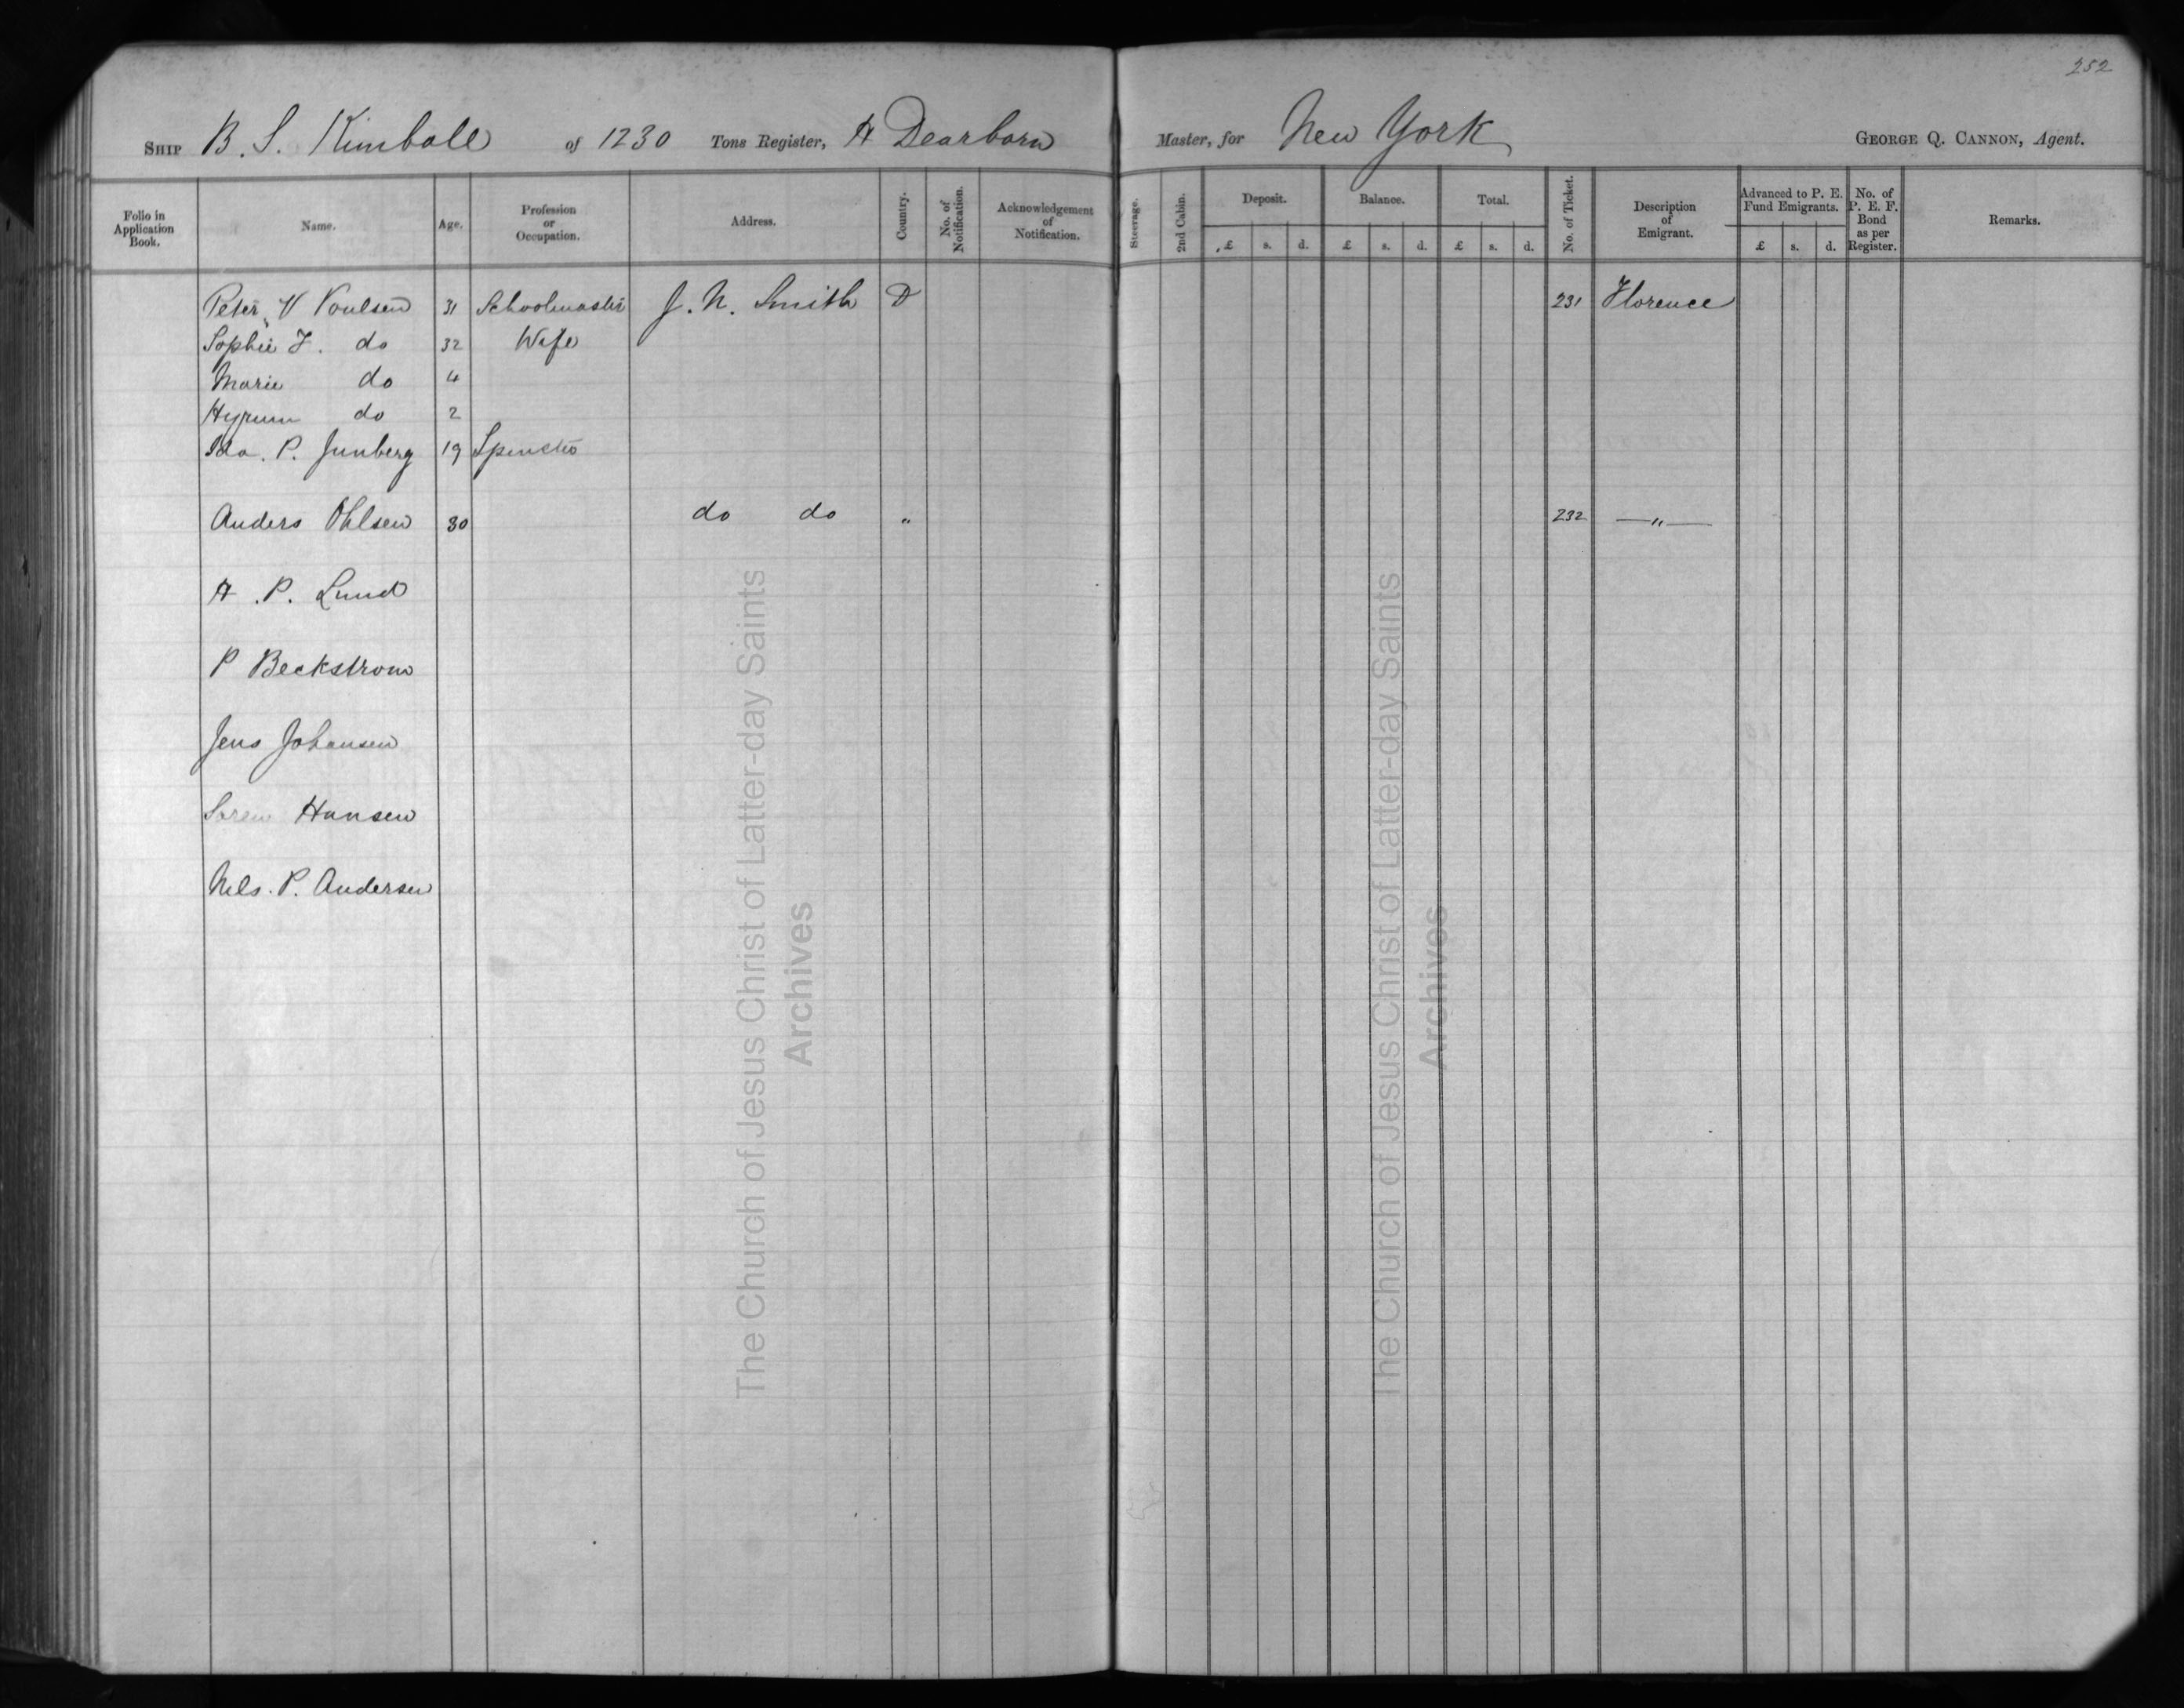 252
SHIP B. S. Kimball of 1230 Tons Register, H Dearborn Master, for New York GEORGE Q. CANNON, Agent.
Folio in Application Book. Name. Age. Profession or Occupation. Address. Country. No. of Notification. Acknowledgement of Notification. Steerage. 2nd Cabin. Deposit. £ s. d. Balance. £ s. d. Total. £ s. d. No. of Ticket. Description of Emigrant. Advanced to P. E. Fund Emigrants. £ s. d. No. of P. E. F. Bond as per Register. Remarks.
Peter V Poulsen 31 Schoolmaster J. N. Smith D 231 Florence
Sophie F. do 32 Wife
Marie do 4
Hyrum do 2
Ida. P. Junberg 19
Anders Ohlsen 30 do do " 232 —"—
A. P. Lund
P Beckstrom
Jens Johansen
Soren Hansen
Nels. P. Andersen
The Church of Jesus Christ of Latter-day Saints
Archives
The Church of Jesus Christ of Latter-day Saints
Archives